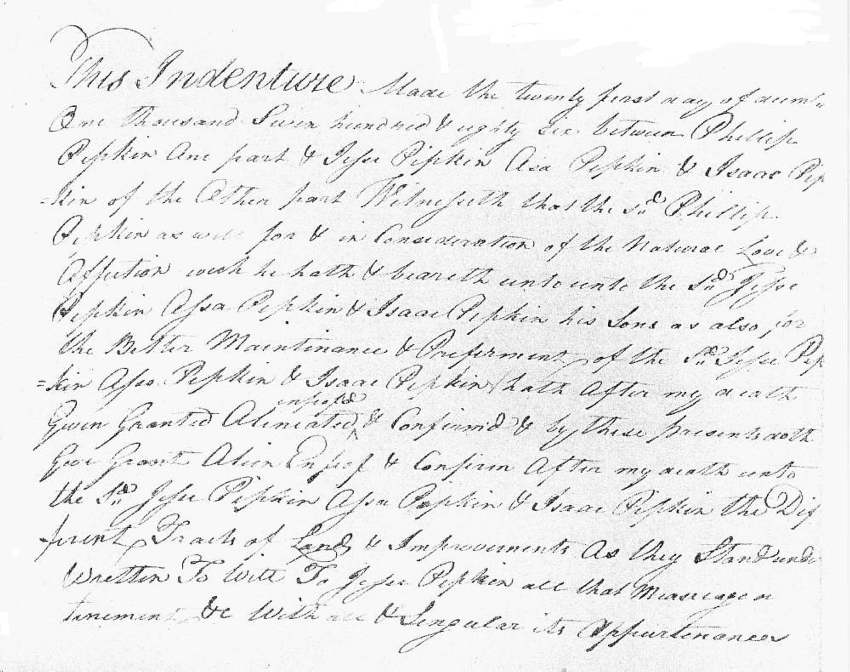 This Indenture Made the twenty first day of
One Thousand Seven hundred & eighty six between Phillip
Pipkin One part & Jesse Pipkin Asa Pipkin & Isaac Pip
=kin of the Other part Witnesseth that the sd Phillip
Pipkin as well for & in Consideration of the Natural Love &
Affection wch he hath & beareth unto unto the sd Jesse
Pipkin Assa Pipkin & Isaac Pipkin his Sons as also for
the Better Maintinance & Preferment of the Sd Jesse Pip
=kin Assa Pipkin & Isaac Pipkin hath After my death
Given Granted Alineated enfeofd & Confirmd & by these presents doth
Give Grant Alien Enfeof & Confirm After my death unto
the Sd Jesse Pipkin Assa Pipkin & Isaac Pipkin the Dif
-ferent Tracts of Land & Improvements As they Stand under
Wretten To Witt To Jesse Pipkin all that Messuage or
tenement &c With all & Singular its Appurtenances